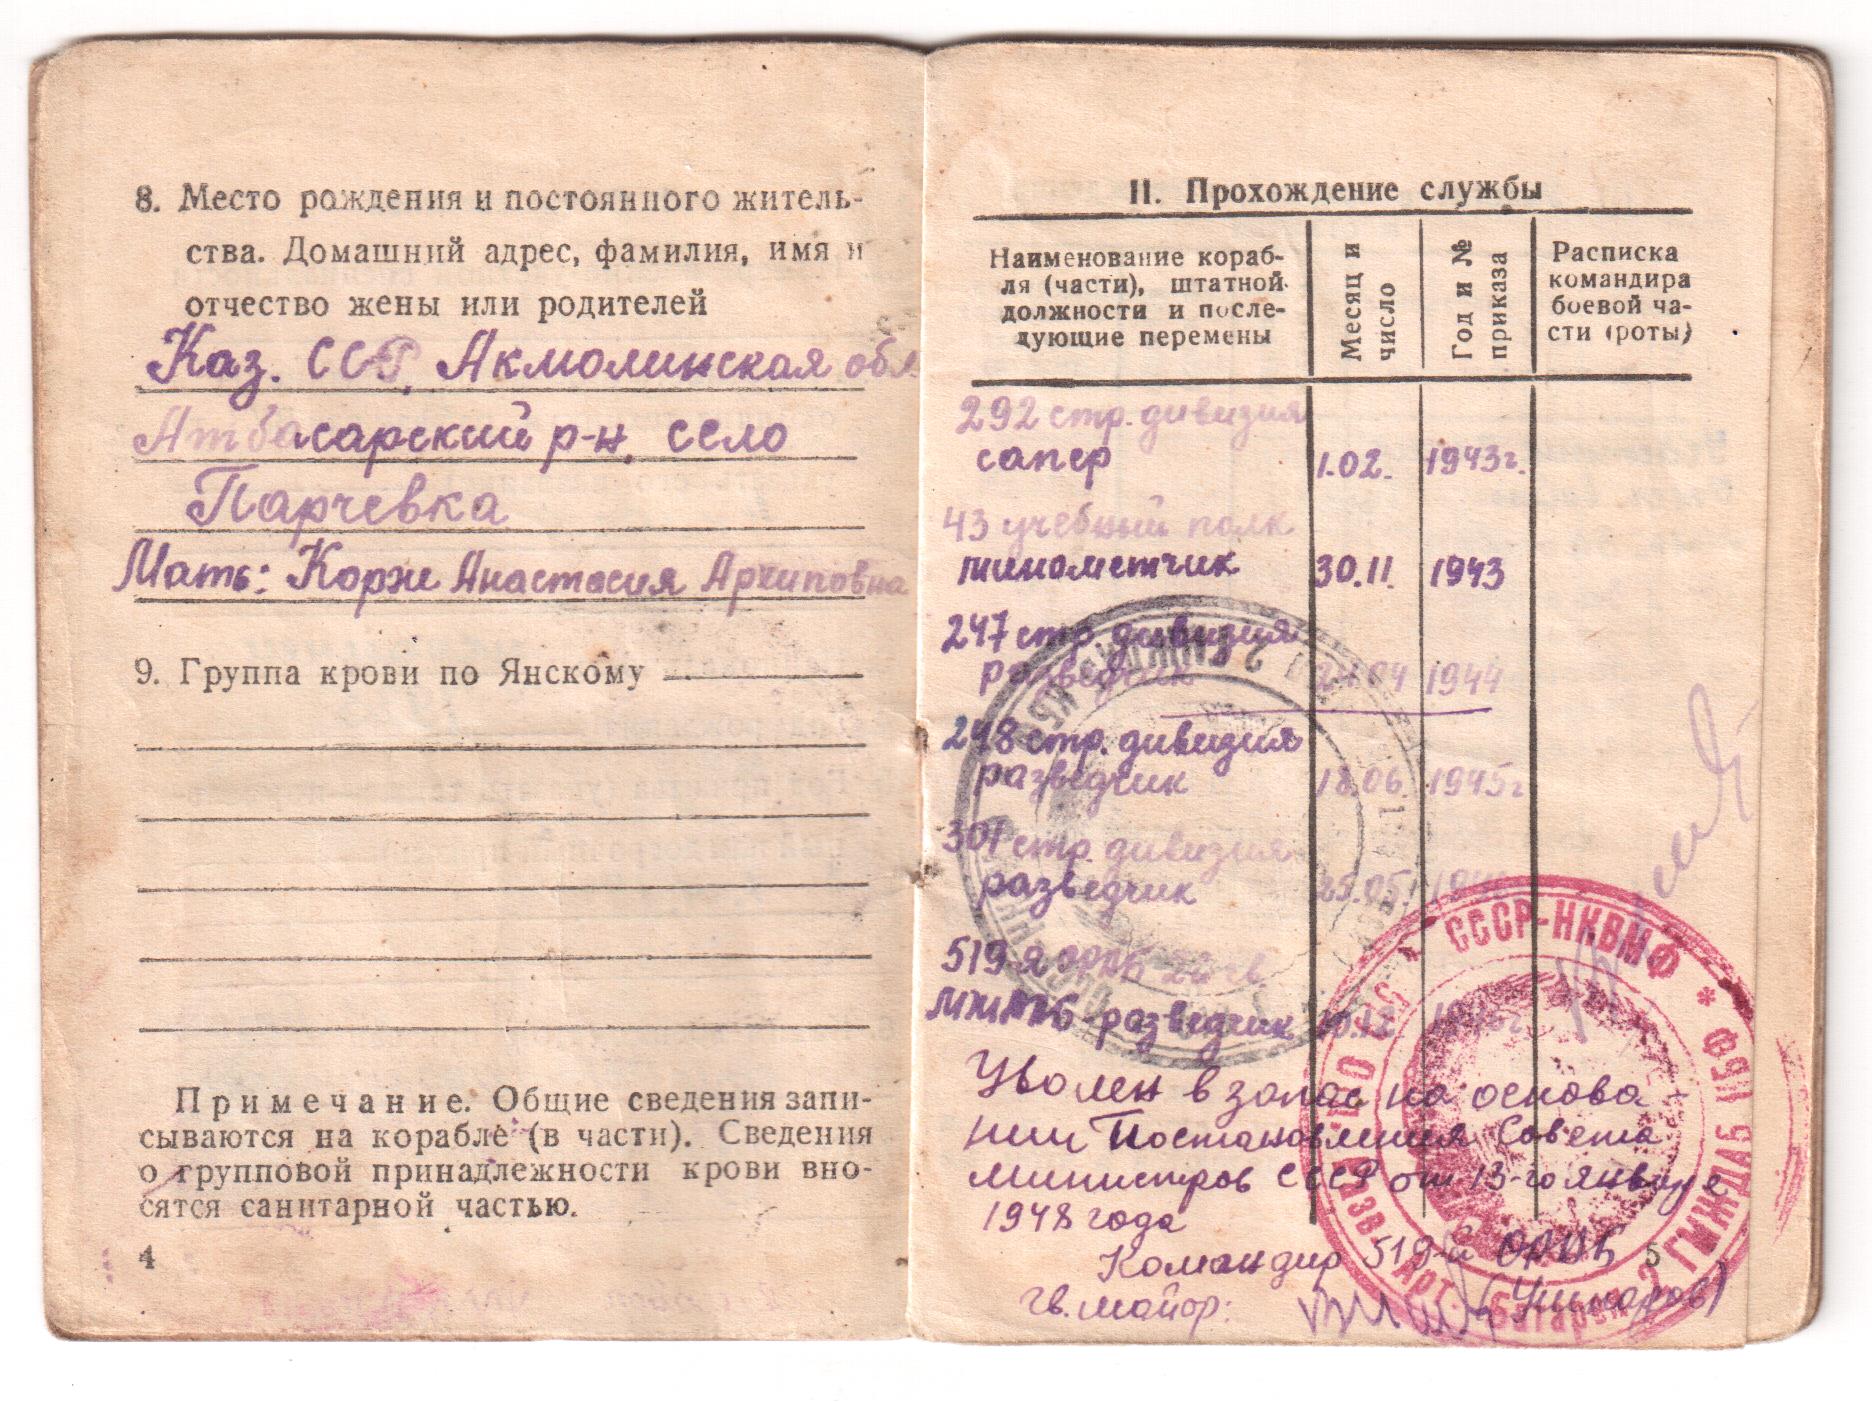 8. Место рождения и постоянного житель-
ства. Домашний адрес, фамилия, имя и
отчество жены или родителей
Каз. ССР, Акмолинская обл
Атбасарский р-н, село
Парчевка
Мать: Корж Анастасия Архиповна
9. Группа крови по Янскому
Примечание. Общие сведения запи-
сываются на корабле (в части). Сведения
о групповой принадлежности крови вно-
сятся санитарной частью.
4
II. Прохождение службы
Наименование кораб-
ля (части), штатной
должности и после-
дующие перемены
Месяц и
число
Год и №
приказа
Расписка
командира
боевой ча-
сти (роты)
292 стр. дивизия
сапер 1.02. 1943г.
43 учебный полк
минометчик 30.11 1943
247 стр. дивизия
разведчик 04 1944
248 стр. дивизия
разведчик 18.06. 1945г
301 стр. дивизия
разведчик 25.05.
519-я ОРДБ
разведчик
СССР-НКВМФ
Уволен в запас на основа
нии Постановления Совета
министров СССР от 13-го января
1948 года
Командир 519-й ОРДБ
5
гв. майор: